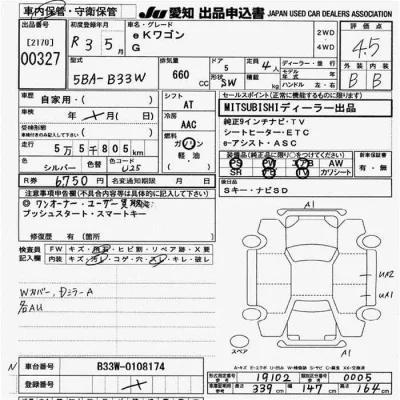 車内保管・守衛保管
JU 愛知 出品申込書 JAPAN USED CAR DEALERS ASSOCIATION
出品番号
[2170]
00327
初度登録年月
R 3 5
車名・グレード
eKワゴン
G
2WD
4WD
評価点
4.5
型式
5BA-B33W
排気量
660
cc
ドア
5
定員
4
人
形状
SW
積載量
kg
ディーラー・並行
モデル年式
年
ハンドル 左・右
外装
B
内装
B
車歴
自家用
車検
年
月
シフト
AT
冷房
AAC
セールスポイント(正常に機能するものに限ります)
MITSUBISHIディーラー出品
純正9インチナビ・TV
シートヒーター・ETC
e-アシスト・ASC
走行
5万5千805km
燃料
ガソリン
軽油
色
シルバー
色替
色コード
U25
装備品(純正に限り)○をつけてください
PS PW AW
SR TV カワシート
新車保証書
有・無
R券
6,750円
名変期限
月
日
後日品
Sキー・ナビSD
注意事項申告欄(不具合内容等は具体的に記入して下さい)
◎ワンオーナー・ユーザー買取車
プッシュスタート・スマートキー
修復歴
有(箇所)・無
検査員記入欄
FW キズ・飛石・ヒビ割・リペア跡・X要
内装 キズ・汚レ・コゲ・穴・スレ・キレ・破レ
Wカバー、DミラーA
名AU
A1
UX2
UX1
A1
スペア
車台番号
B33W-0108174
登録番号
型式指定番号
19102
類別区分番号
0005
車両寸法
長さ
339
cm
幅
147
cm
高さ
164
cm